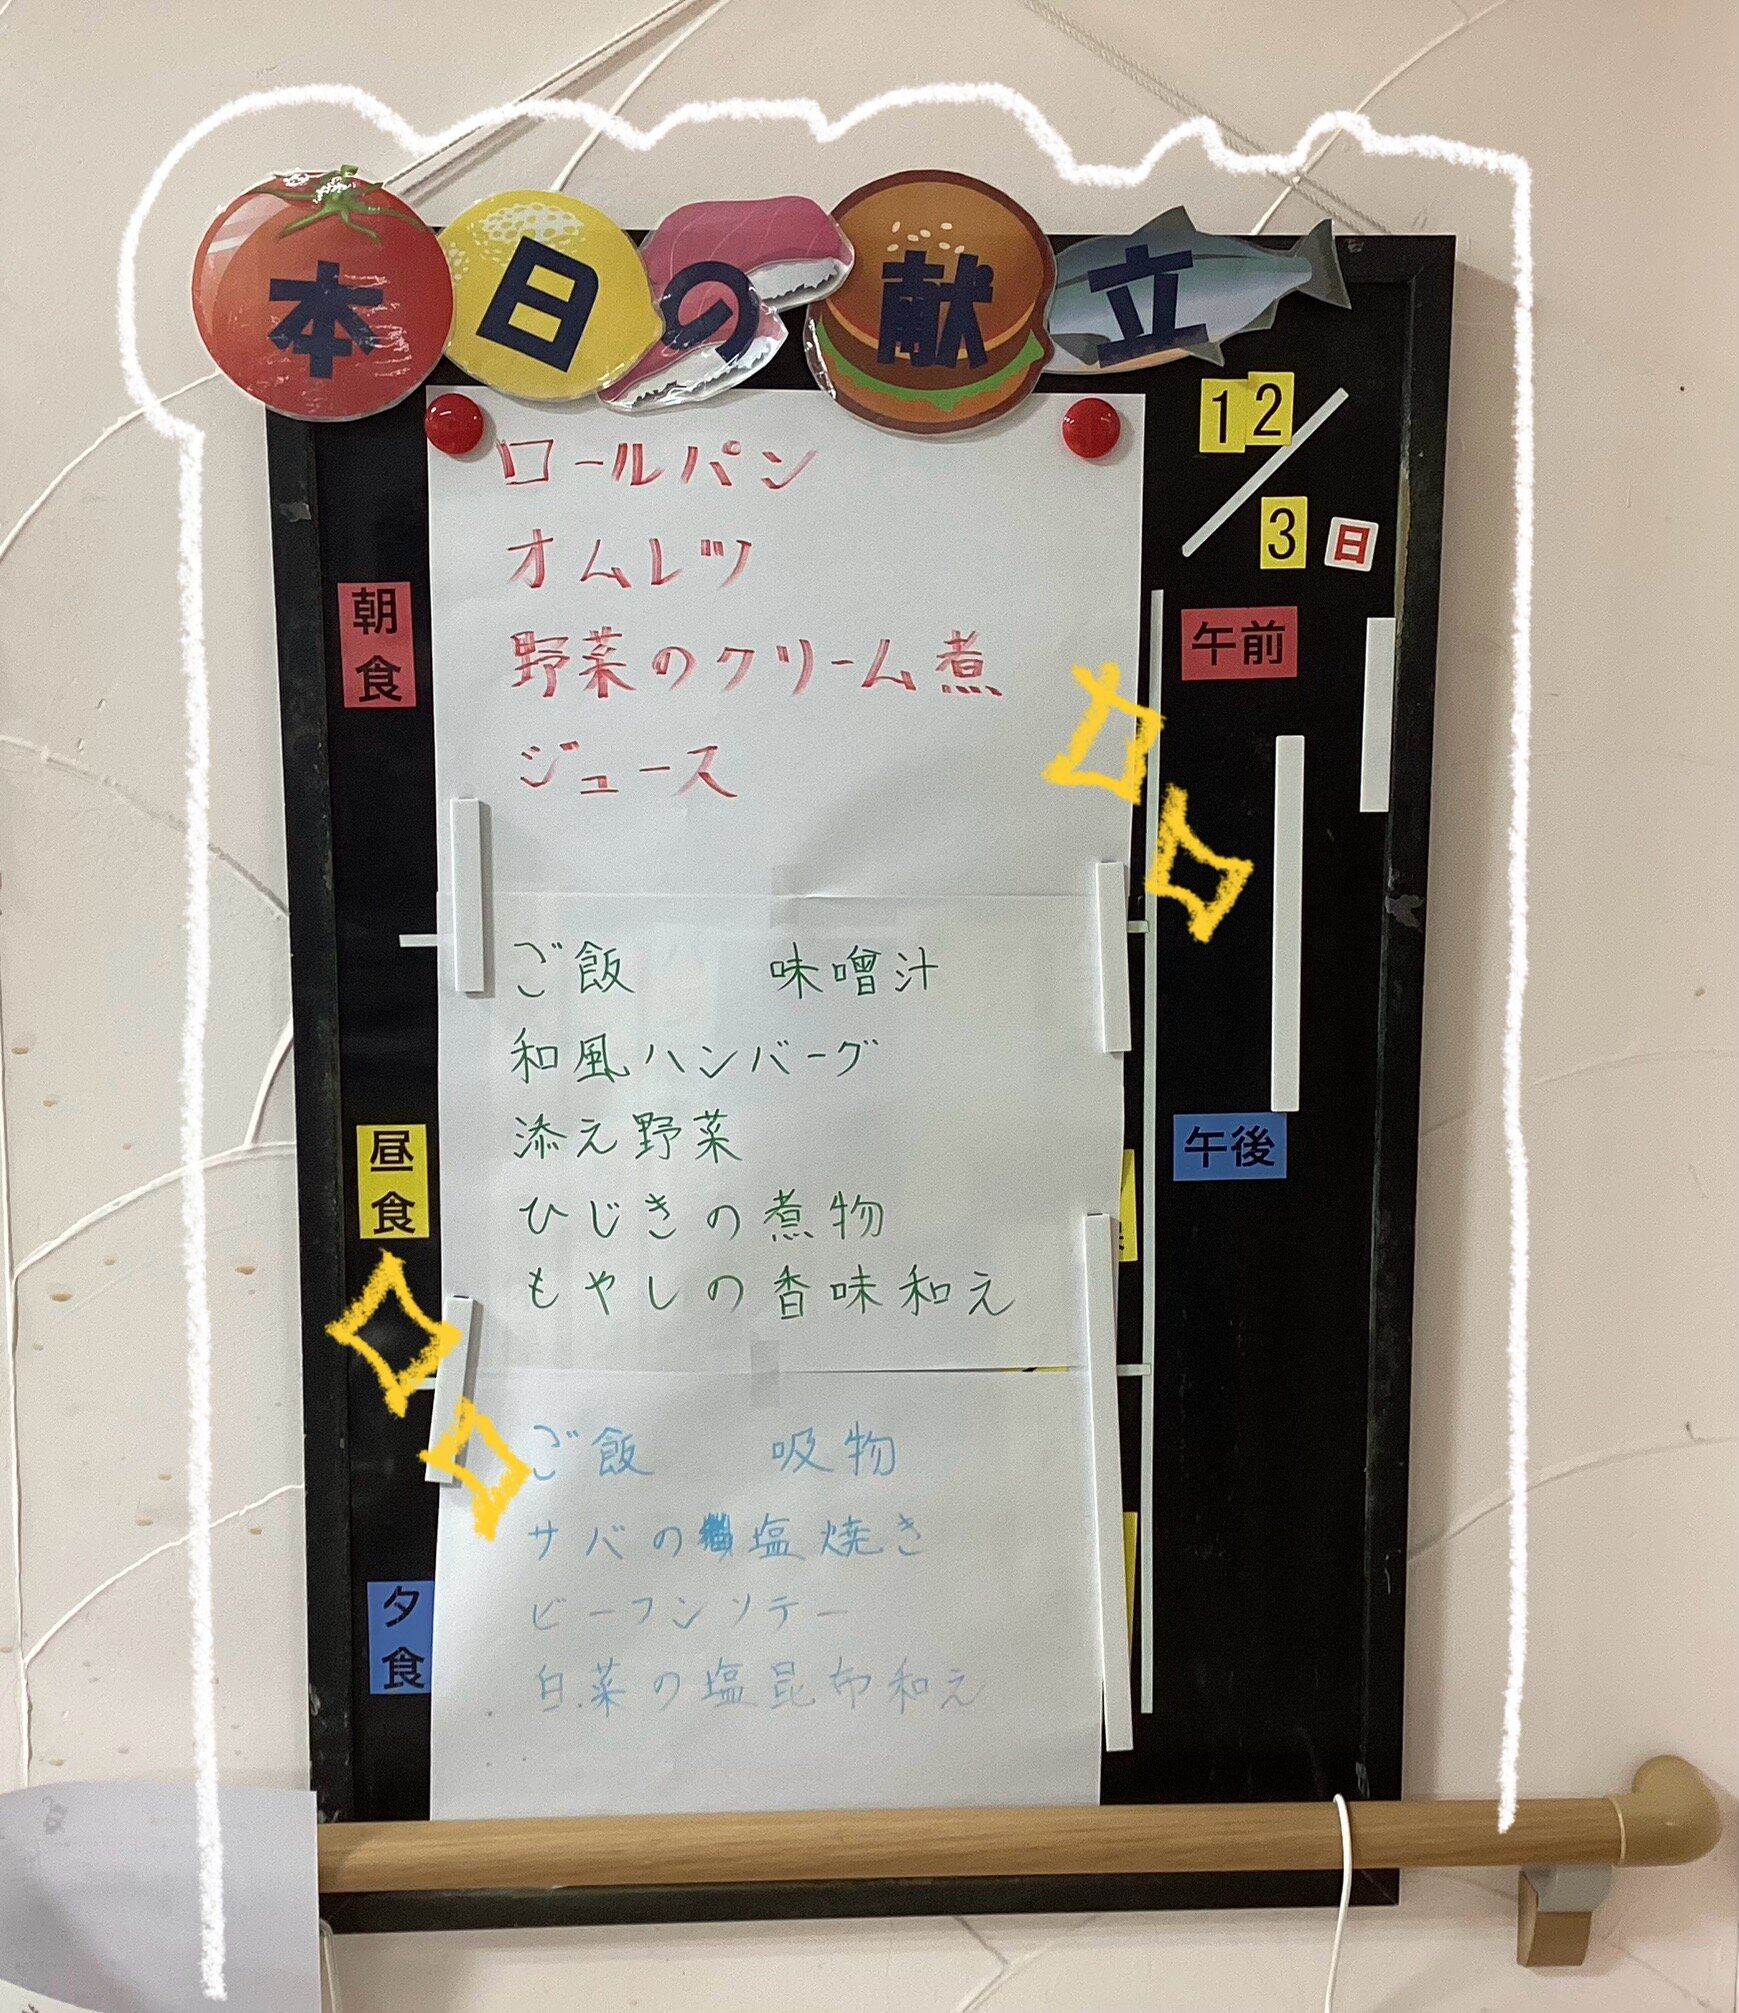 本日の献立
12/3 日
朝食
ロールパン
オムレツ
野菜のクリーム煮
ジュース
昼食
ご飯 味噌汁
和風ハンバーグ
添え野菜
ひじきの煮物
もやしの香味和え
夕食
ご飯 吸物
サバの塩焼き
ビーフンソテー
白菜の塩昆布和え
午前
午後